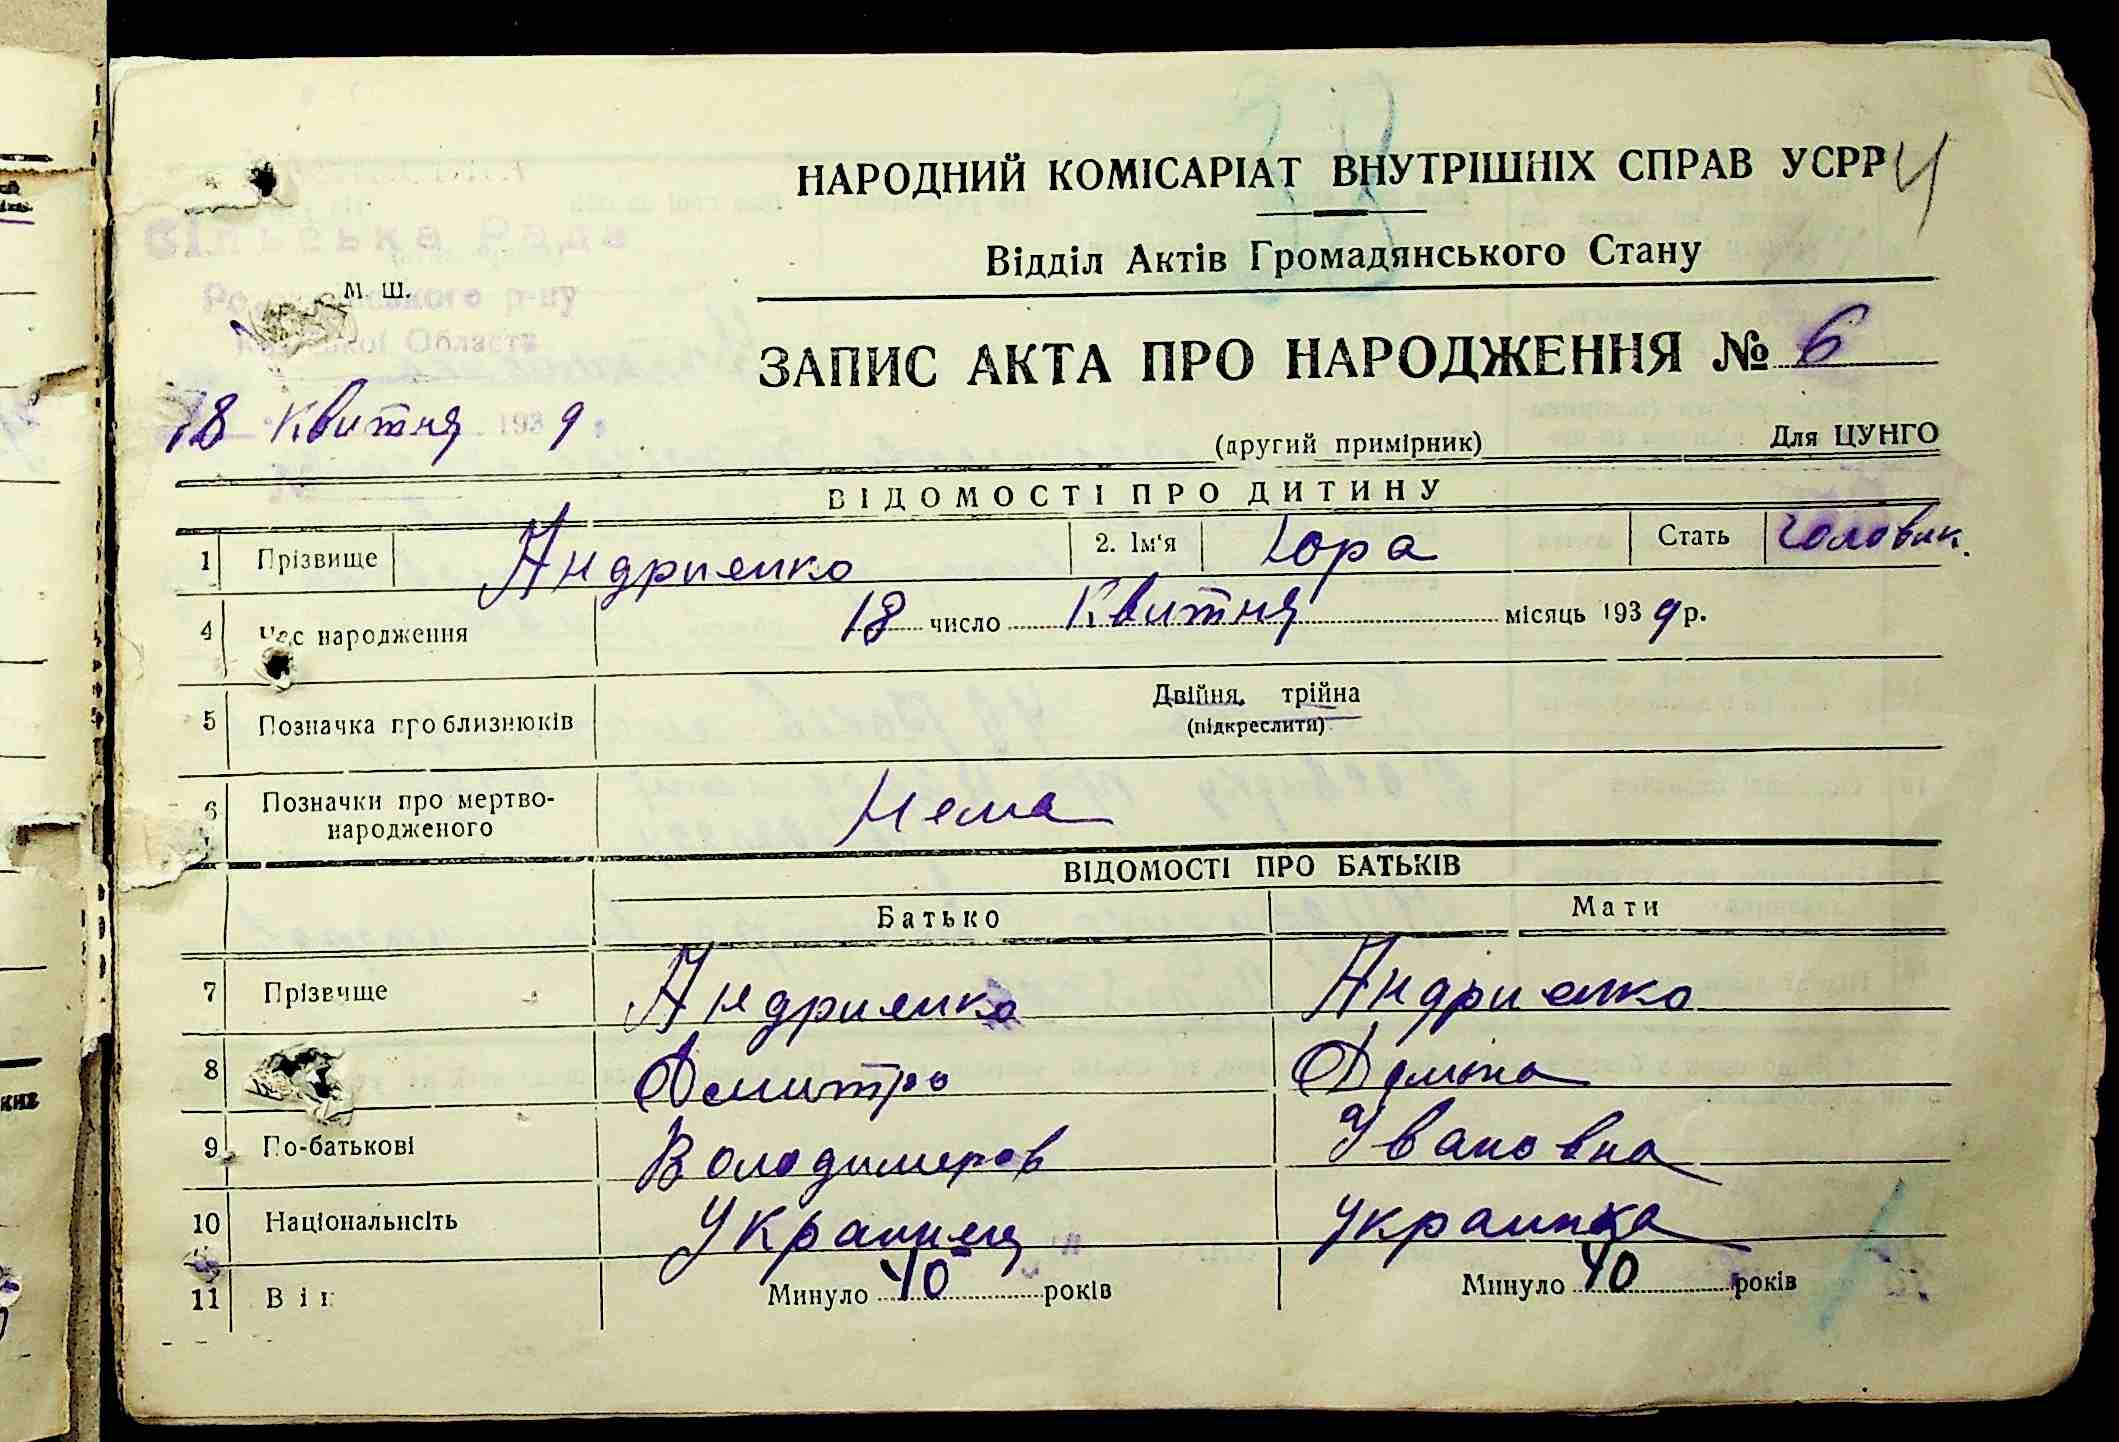 НАРОДНИЙ КОМІСАРІАТ ВНУТРІШНІХ СПРАВ УСРР
Відділ Актів Громадянського Стану
Сільська Рада
р-ну
Області
М. Ш.
ЗАПИС АКТА ПРО НАРОДЖЕННЯ № 6
18 Квитня 1939
(другий примірник) Для ЦУНГО
ВІДОМОСТІ ПРО ДИТИНУ
1 Прізвище Андриенко 2. Ім'я Юра Стать Головик.
4 Час народження 18 число Квитня місяць 1939 р.
5 Позначка про близнюків Двійня, трійна
(підкреслити)
6 Позначки про мертво-
народженого Нема
ВІДОМОСТІ ПРО БАТЬКІВ
Батько Мати
7 Прізвище Андриенко Андриенко
8 Дмитро
9 По-батькові Володимеров Ивановна
10 Національність Украинец украинка
11 Вік Минуло 40 років Минуло 40 років